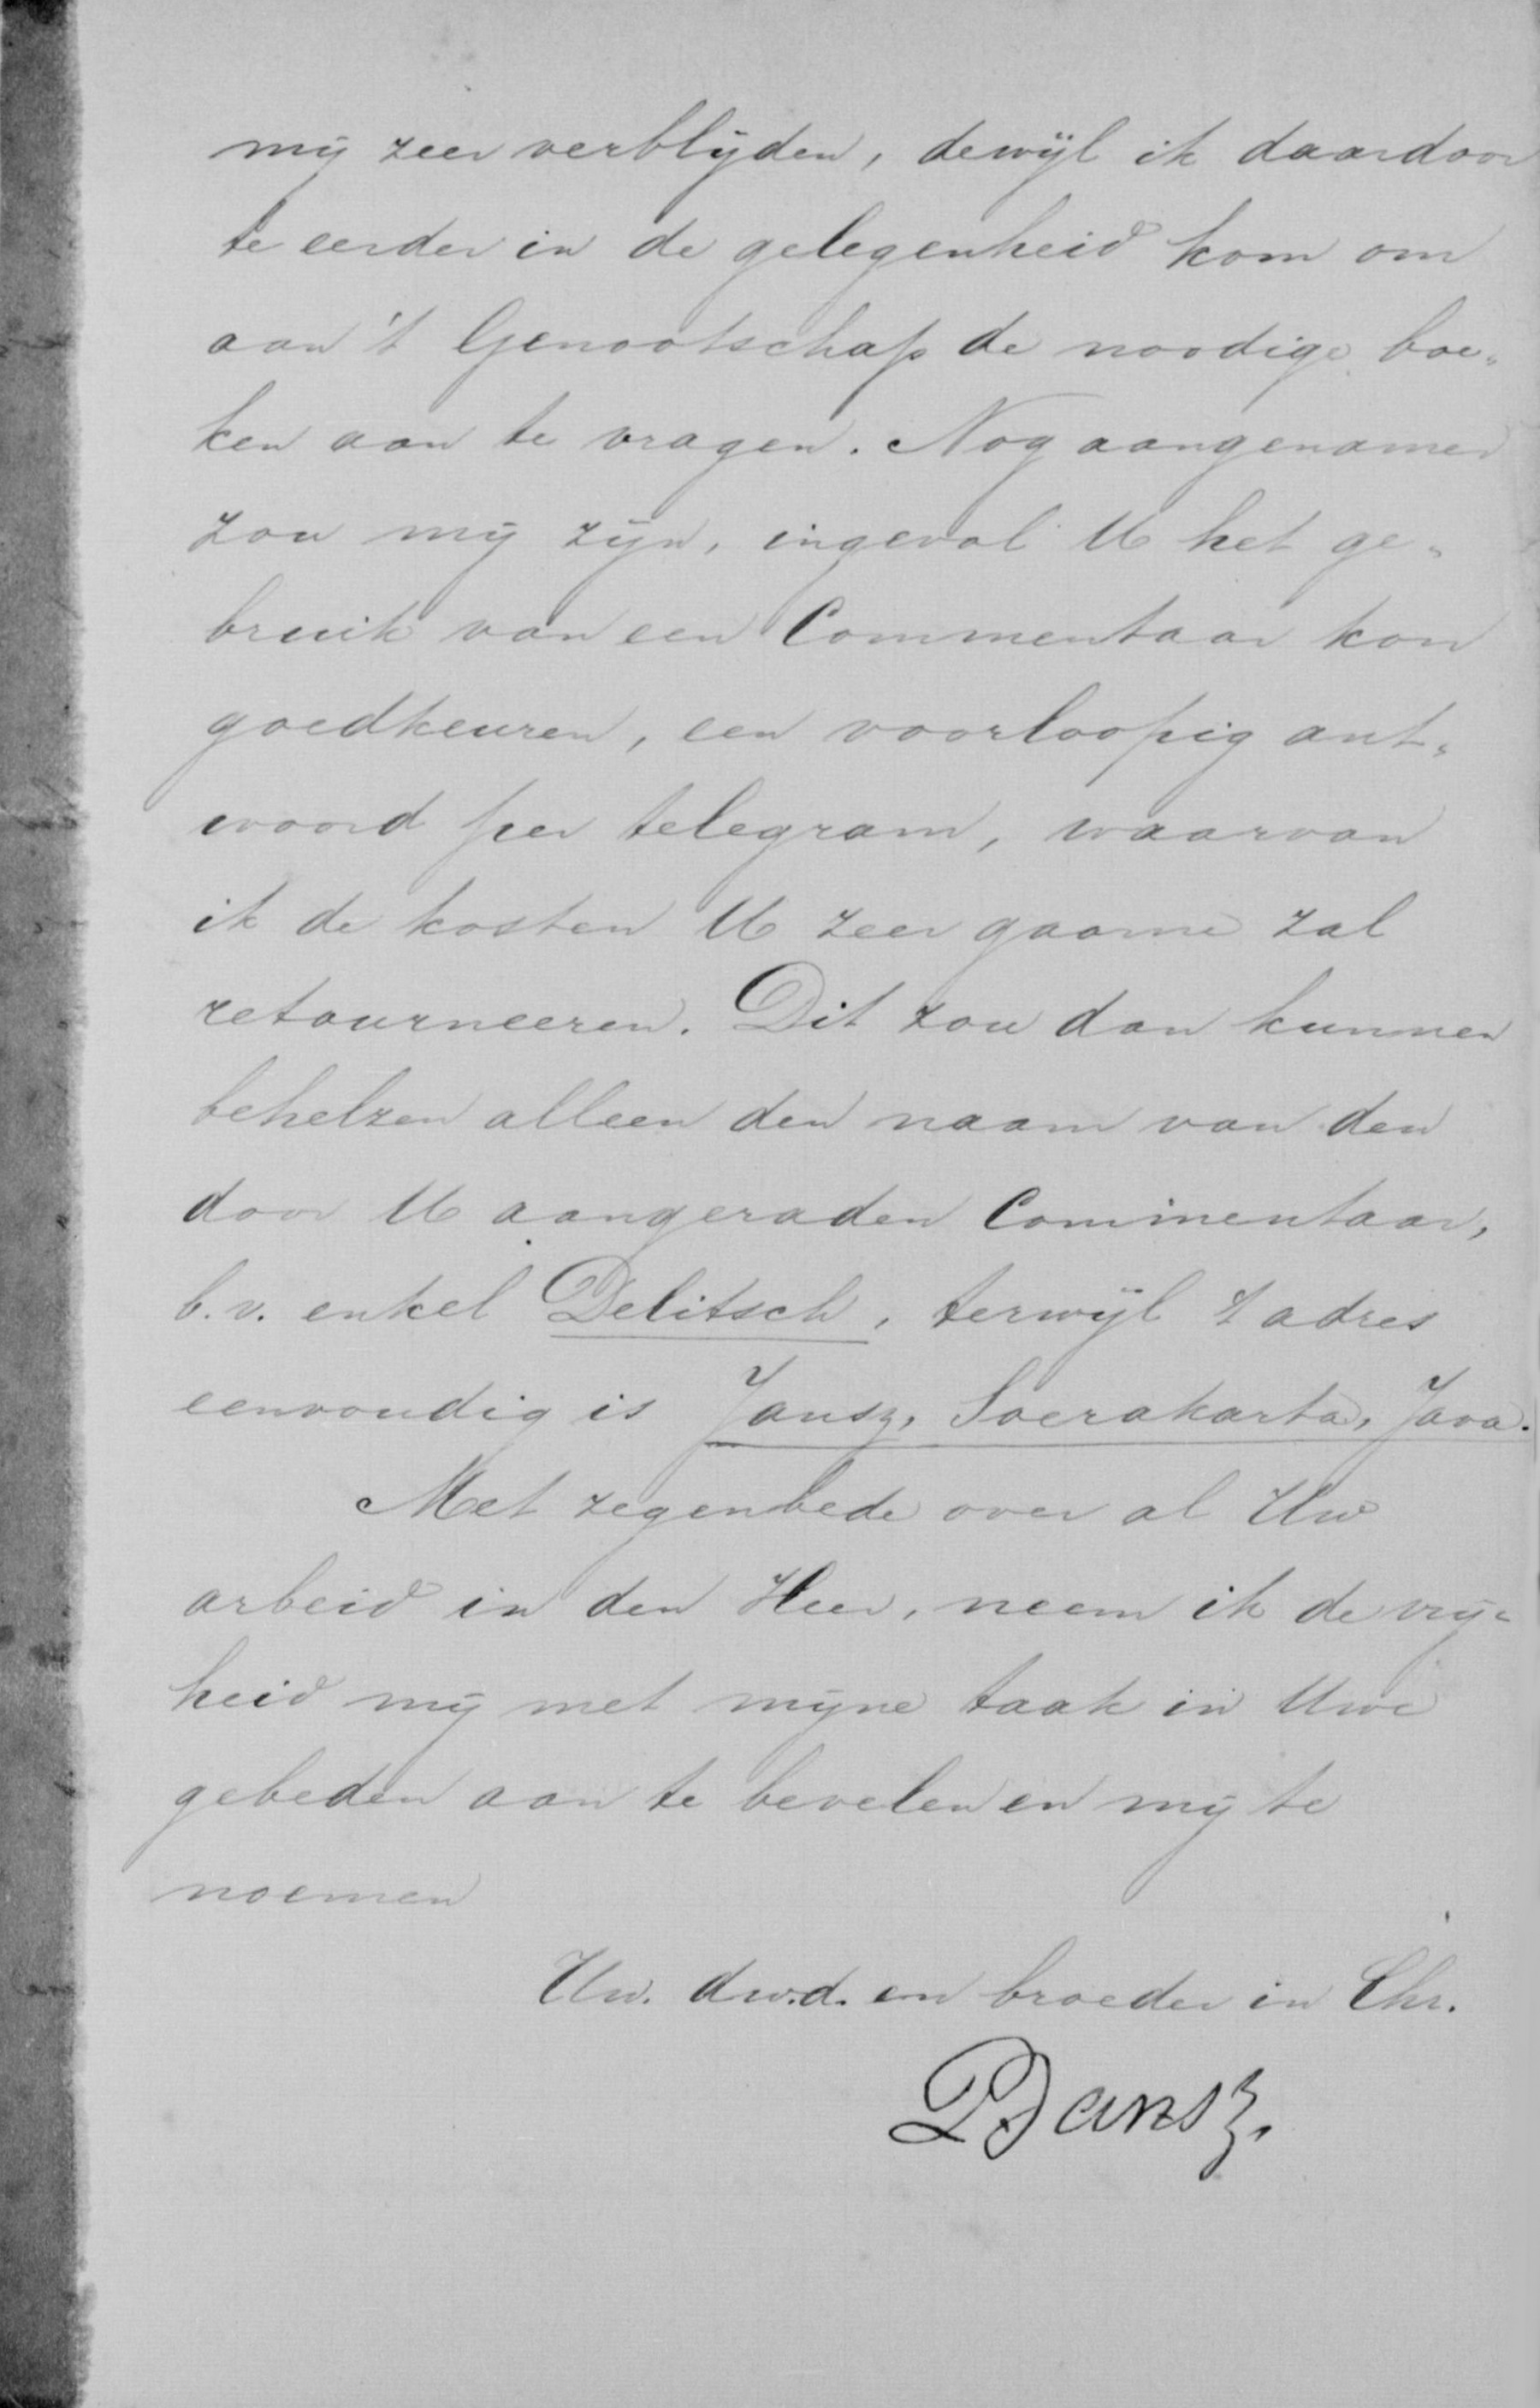 mij zeer verblijden, dewijl ik daardoor
te eerder in de gelegenheid kom om
aan 't Genootschap de noodige boe-
ken aan te vragen. Nog aangenamer
zou mij zijn, ingeval U het ge-
bruik van een Commentaar kon
goedkeuren, een voorloopig ant-
woord per telegram, waarvan
ik de kosten U zeer gaarne zal
retourneeren. Dit zou dan kunnen
behelzen alleen den naam van den
door U aangeraden Commentaar,
b.v. enkel Delitsch, terwijl 't adres
eenvoudig is Jansz, Soerakarta, Java.
Met zegenbede over al Uw
arbeid in den Heer, neem ik de vrij-
heid mij met mijne taak in Uwe
gebeden aan te bevelen en mij te
noemen
Uw. dw.d. en broeder in Chr.
P Jansz.